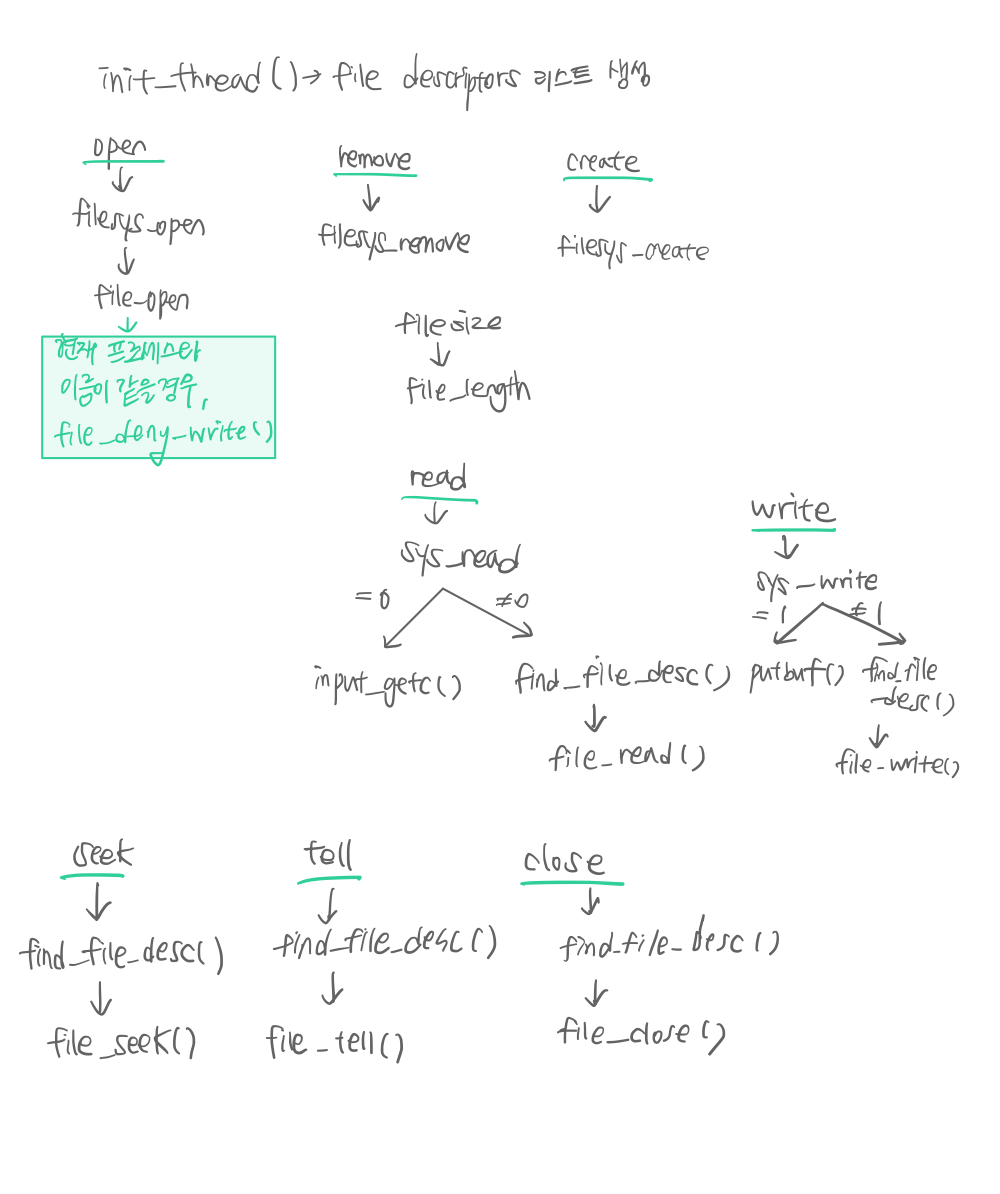 init_thread() → file descriptors 리스트 생성
open
↓
filesys_open
↓
file_open
↓
현재 프로세스와
이름이 같을 경우,
file_deny_write()
remove
↓
filesys_remove
create
↓
filesys_create
filesize
↓
file_length
read
↓
sys_read
=0 ≠0
input_getc() find_file_desc()
↓
file_read()
write
↓
sys_write
=1 ≠1
putbuf() find_file
_desc()
↓
file_write()
seek
↓
find_file_desc()
↓
file_seek()
tell
↓
find_file_desc()
↓
file_tell()
close
↓
find_file_desc()
↓
file_close()